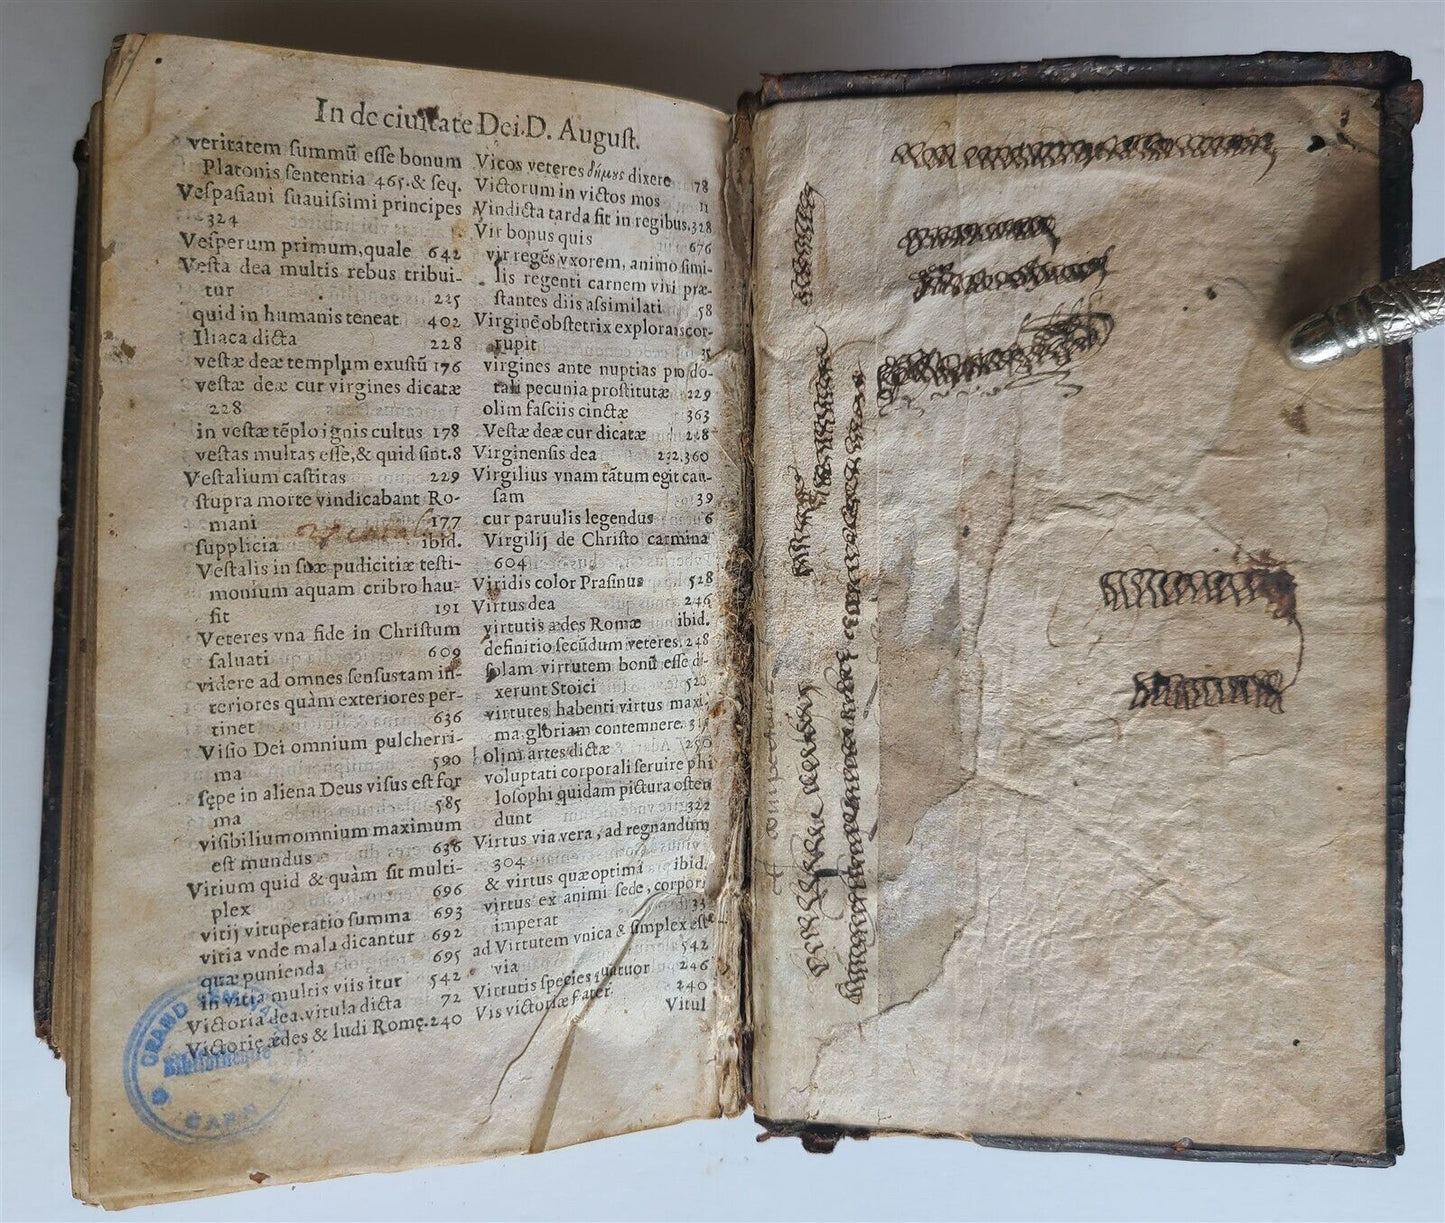 In de ciuitate Dei. D. Auguſt.
veritatem ſummũ eſſe bonum
Platonis ſententia 465. & ſeq.
Veſpaſiani ſuauiſsimi principes
324
Veſperum primum, quale 642
Veſta dea multis rebus tribui-
tur 225
quid in humanis teneat 402
Iliaca dicta 228
veſtæ deæ templum exuſtũ 176
veſtæ deæ cur virgines dicatæ
228
in veſtæ tẽplo ignis cultus 178
veſtas multas eſſe, & quid ſint. 8
Veſtalium caſtitas 229
ſtupra morte vindicabant Ro-
mani 177
ſupplicia ibid.
Veſtalis in ſuæ pudicitiæ teſti-
monium aquam cribro hau-
ſit 191
Veteres vna fide in Chriſtum
ſaluati 609
videre ad omnes ſenſus tam in-
teriores quàm exteriores per-
tinet 636
Viſio Dei omnium pulcherri-
ma 590
ſępe in aliena Deus viſus eſt for
ma 585
viſibilium omnium maximum
eſt mundus 636
Vitium quid & quàm ſit multi-
plex 696
vitij vituperatio ſumma 693
vitia vnde mala dicantur 692
quæ punienda 695
in vitia multis viis itur 542
Victoria dea, vitula dicta 72
Victorię ædes & ludi Romę. 240
Vicos veteres δήμους dixere 178
Victorum in victos mos 11
Vindicta tarda ſit in regibus. 328
Vir bonus quis 676
vir regẽs vxorem, animo ſimi-
lis regenti carnem viri præ-
ſtantes diis aſsimilati 58
Virginẽ obſtetrix explorans cor-
rupit 35
virgines ante nuptias pro do-
tali pecunia proſtitutæ 229
olim faſciis cinctæ 363
Veſtæ deæ cur dicatæ 228
Virginenſis dea 232. 360
Virgilius vnam tãtum egit cau-
ſam 39
cur paruulis legendus 6
Virgilij de Chriſto carmina
604
Viridis color Praſinus 528
Virtus dea 246
virtutis ædes Romæ ibid.
definitio ſecũdum veteres. 248
ſolam virtutem bonũ eſſe di-
xerunt Stoici 520
virtutes habenti virtus maxi.
ma gloriam contemnere.
olim artes dictæ 250
voluptati corporali ſeruire phi
loſophi quidam pictura oſten
dunt 322
Virtus via vera, ad regnandum
304
& virtus quæ optima ibid.
virtus ex animi ſede, corpori
imperat 33
ad Virtutem vnica & ſimplex eſt
via 542
Virtutis ſpecies quatuor 246
Vis victoriæ fater 240
Vitul
GRAND SEMINAIRE
Bibliothèque